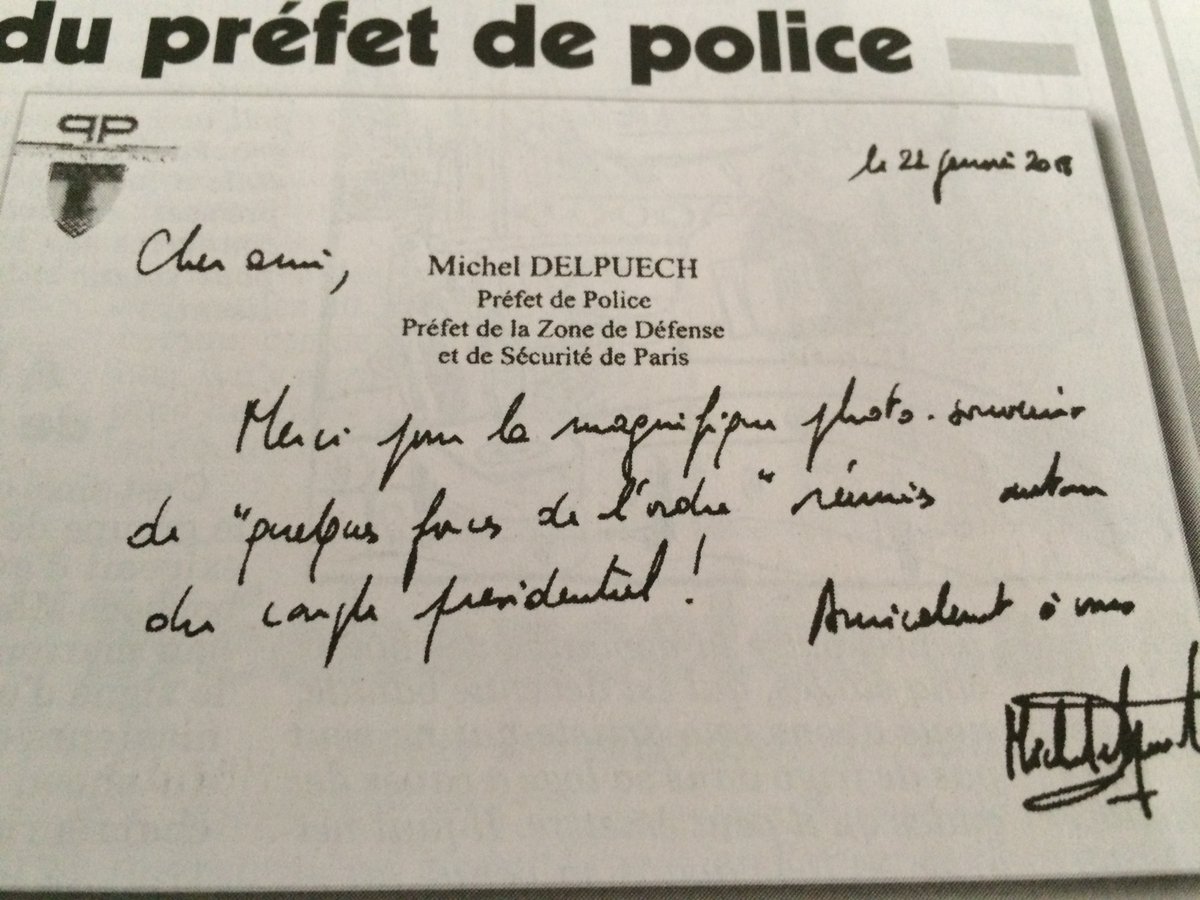 du préfet de police
PP
le 22 janvier 2018
Cher ami,
Michel DELPUECH
Préfet de Police
Préfet de la Zone de Défense
et de Sécurité de Paris
Merci pour la magnifique photo-souvenir
de "quelques forces de l'ordre" réunis autour
du couple présidentiel !
Amicalement à vous